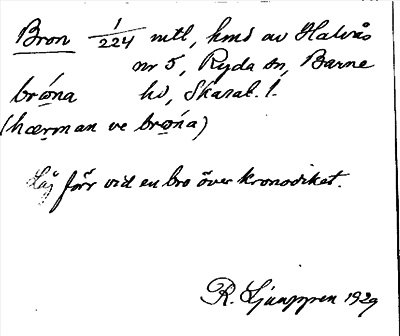 Bron 1/224 mtl, hmd av Halvås
nr 5, Ryda sn, Barne
brớna hd, Skarab. l.
(hærman ve brớna)
Låg förr vid en bro över kronodiket.
R. Ljunggren 1929